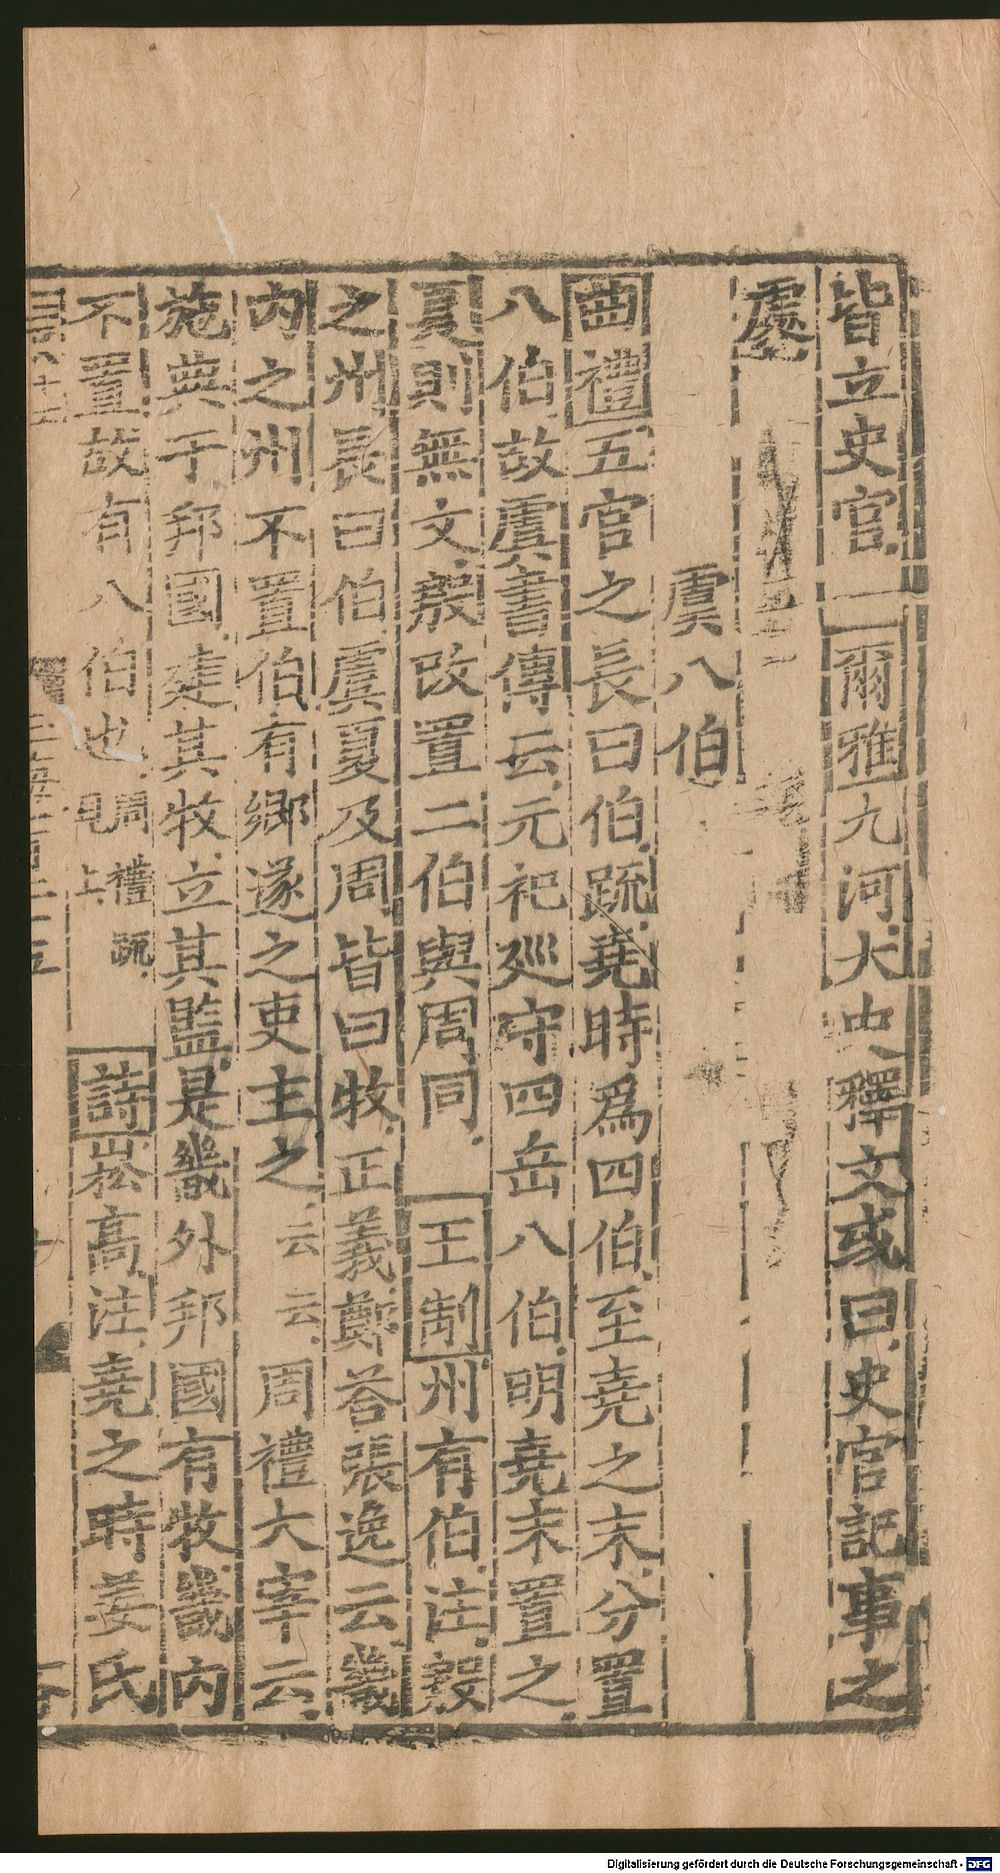 皆立史官 爾雅九河大史釋文或曰史官記事之
處
虞八伯
曲禮五官之長曰伯疏堯時爲四伯至堯之末分置
八伯故虞書傳云元祀廵守四岳八伯明堯末置之
夏則無文殷改置二伯與周同 王制州有伯注殷
之州長曰伯虞夏及周皆曰牧正義鄭荅張逸云畿
内之州不置伯有鄉遂之吏主之云云周禮大宰云
施典于邦國建其牧立其監是畿外邦國有牧畿内
不置故有八伯也周禮疏見上 詩崧高注堯之時姜氏
Digitalisierung gefördert durch die Deutsche Forschungsgemeinschaft - DFG